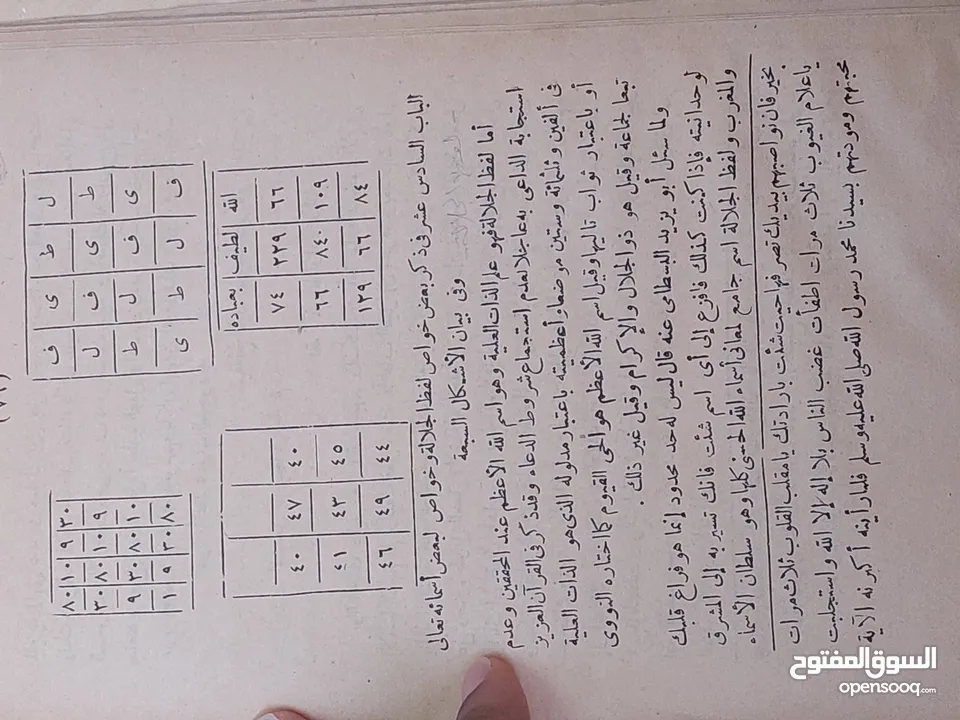 ل ط ي ف
ط ي ف ل
ي ف ل ط
ف ل ط ي
٣٠ ٩ ١٠ ٨٠
٩ ١٠ ٨٠ ٣٠
١٠ ٨٠ ٣٠ ٩
٨٠ ٣٠ ٩ ١
الله لطيف بعباده
٦٦ ٢٢٩ ٧٤
١٠٩ ٨٤٠ ٦٦
٨٤ ٦٦ ١٢٩
٤٠ ٤٧ ٤٠
٤٥ ٤٣ ٤١
٤٤ ٤٩ ٤٦
الباب السادس عشر فى ذكر بعض خواص لفظ الجلالة وخواص لبعض أسمائه تعالى
وفى بيان الأشكال السبعة
أما لفظ الجلالة فهو علم الذات العلية وهو اسم الله الأعظم عند المحققين وعدم
استجابة الداعى به عاجلا لعدم استجماع شروط الدعاء وقد ذكر فى القرآن العزيز
فى ألفين وثلثمائة وستين موضعا وأعظميته باعتبار مدلوله الذى هو الذات العلية
أو باعتبار ثواب تاليها وقيل اسم الله الأعظم هو الحى القيوم كما اختاره النووى
تبعا لجماعة وقيل هو ذو الجلال والإكرام وقيل غير ذلك.
ولما سئل أبو يزيد البسطامى عنه قال ليس له حد محدود إنما هو فراغ قلبك
لوحدانيته فإذا كنت كذلك فافزع إلى أى اسم شئت فانك تسير به إلى المشرق
والمغرب ولفظ الجلالة اسم جامع لمعانى أسماء الله الحسنى كلها وهو سلطان الأسماء
بخير فان نواصيهم بيديك تصرفهم حيث شئت بارادتك يا مقلب القلوب ثلاث مرات
يا علام الغيوب ثلاث مرات اطفأت غضب الناس بلا إله إلا الله واستجلبت
محبتهم ومودتهم بسيدنا محمد رسول الله صلى الله عليه وسلم فلما رأينه أكبرنه الآية
السوق المفتوح
opensooq.com